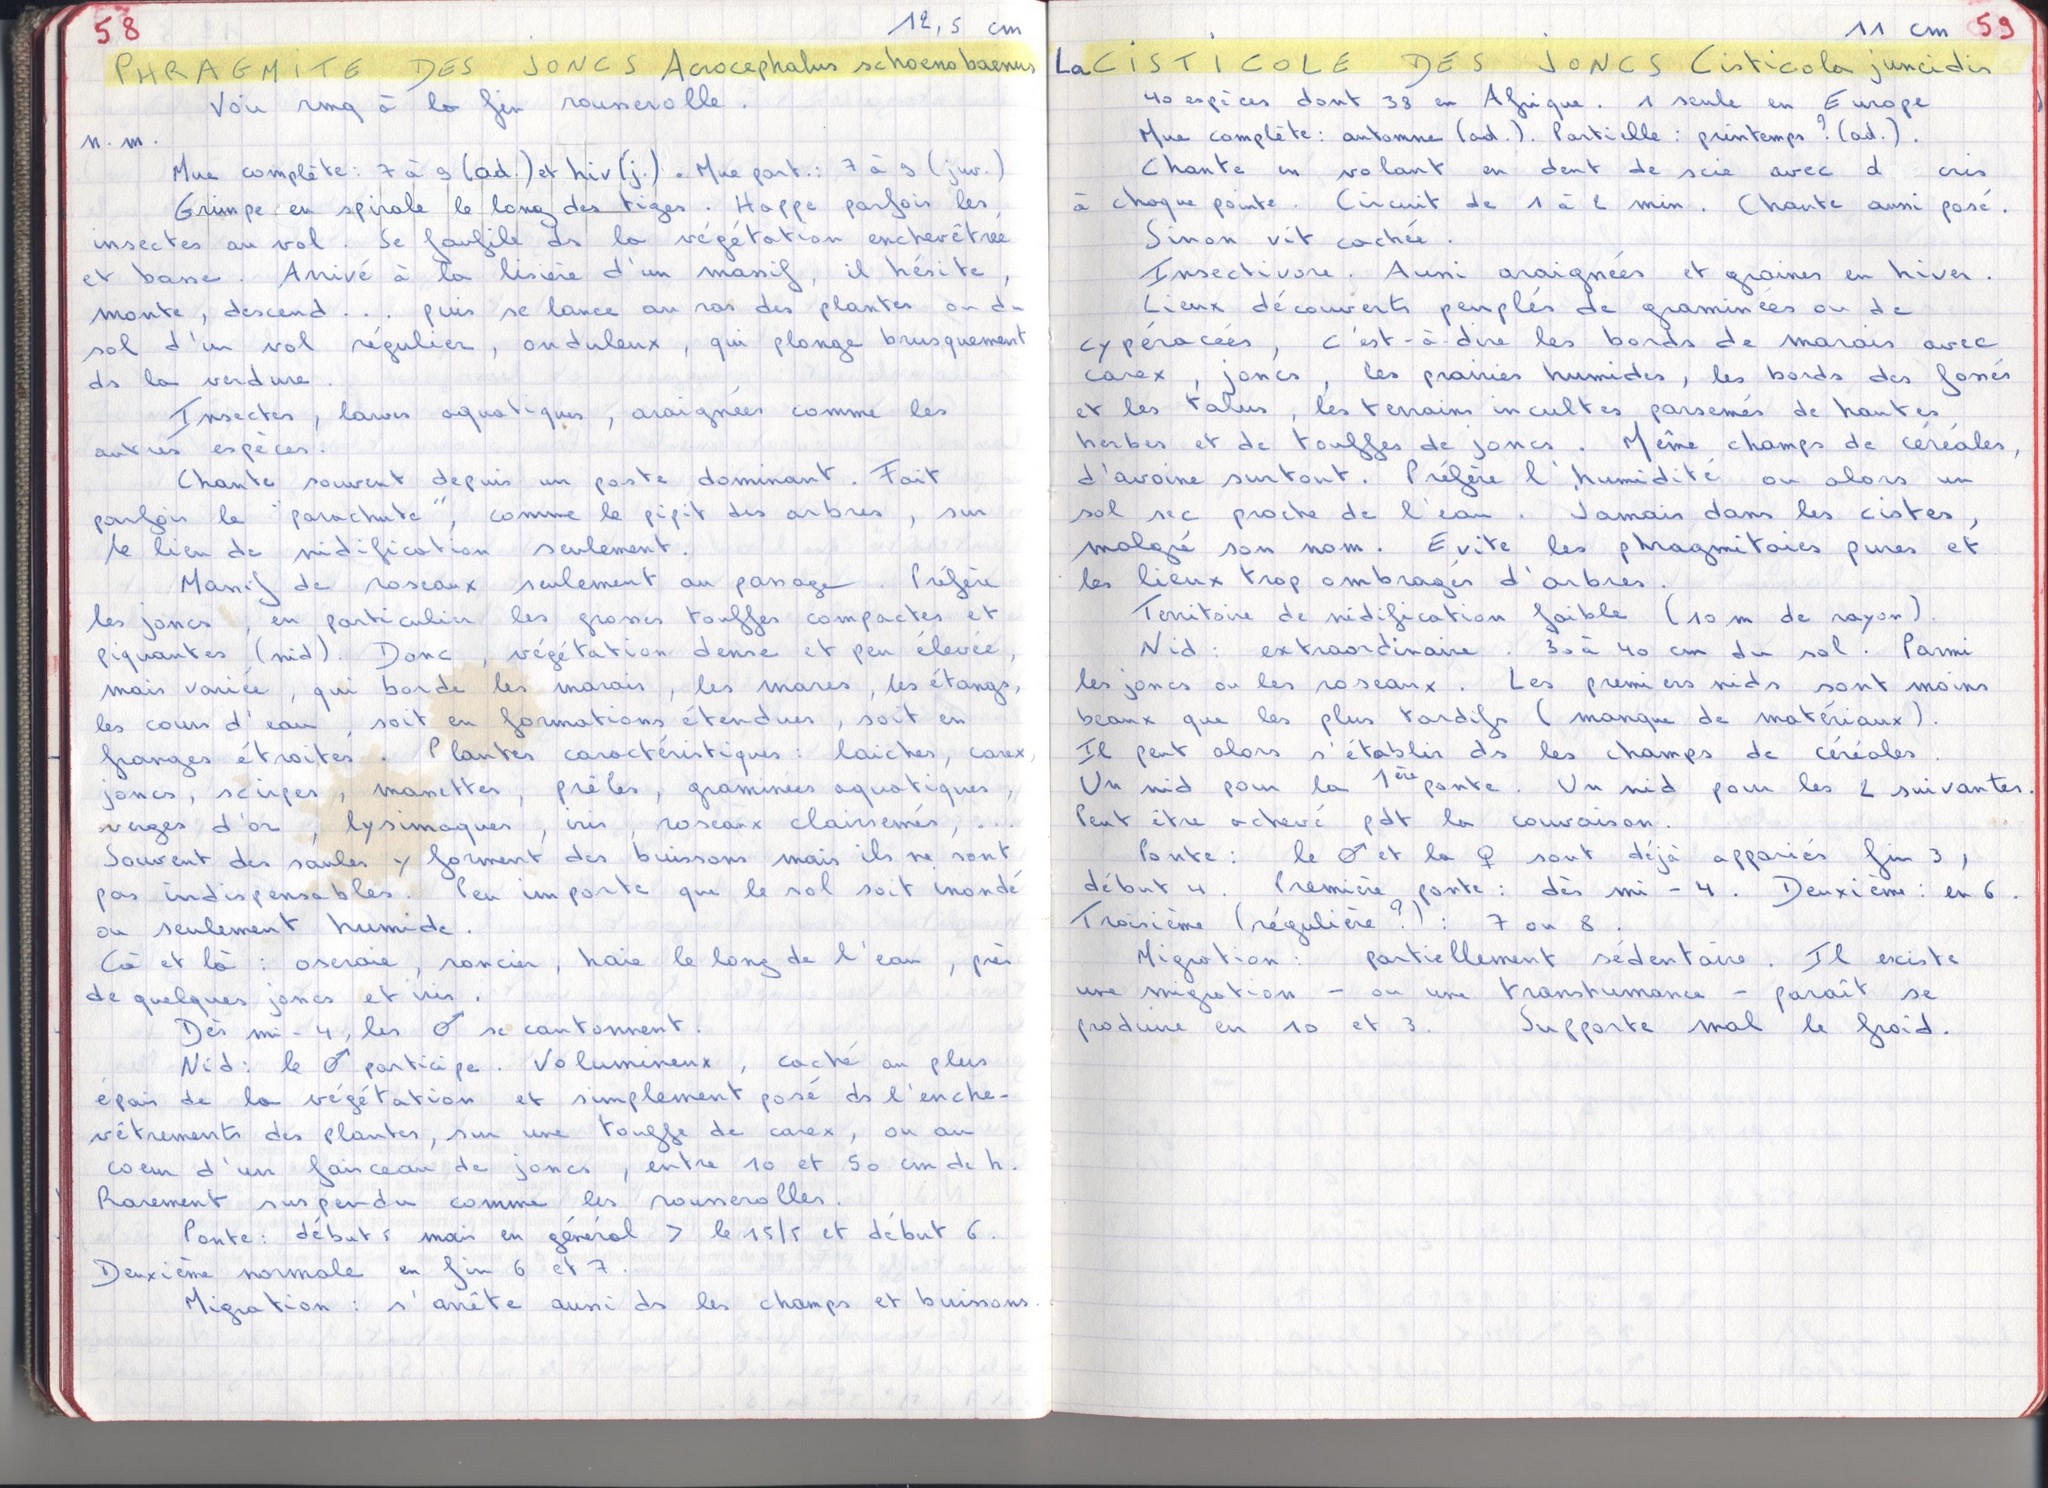 58
12,5 cm
PHRAGMITE DES JONCS Acrocephalus schoenobaenus
Voir rmq à la fin rousserolle.
n.m.
Mue complète : 7 à 9 (ad.) et hiv (j.). Mue part. : 7 à 9 (juv.)
Grimpe en spirale le long des tiges. Happe parfois les
insectes au vol. Se faufile ds la végétation enchevêtrée
et basse. Arrivé à la lisière d'un massif, il hésite,
monte, descend... puis se lance au ras des plantes ou du
sol d'un vol régulier, onduleux, qui plonge brusquement
ds la verdure.
Insectes, larves aquatiques, araignées comme les
autres espèces.
Chante souvent depuis un poste dominant. Fait
parfois le "parachute", comme le pipit des arbres, sur
le lieu de nidification seulement.
Massif de roseaux seulement au passage. Préfère
les joncs, en particulier les grosses touffes compactes et
piquantes (nid). Donc, végétation dense et peu élevée,
mais variée, qui borde les marais, les mares, les étangs,
les cours d'eau, soit en formations étendues, soit en
franges étroites. Plantes caractéristiques : laiches, carex,
joncs, scirpes, massettes, prêles, graminées aquatiques,
verges d'or, lysimaques, iris, roseaux clairsemés,...
Souvent des saules y forment des buissons mais ils ne sont
pas indispensables. Peu importe que le sol soit inondé
ou seulement humide.
Cà et là : oseraie, roncier, haie le long de l'eau, près
de quelques joncs et iris.
Dès mi-4, les ♂ se cantonnent.
Nid : le ♂ participe. Volumineux, caché au plus
épais de la végétation et simplement posé ds l'enche-
vêtrements des plantes, sur une touffe de carex, ou au
coeur d'un faisceau de joncs, entre 10 et 50 cm de h.
Rarement suspendu comme les rousserolles.
Ponte : début 5 mais en général > le 15/5 et début 6.
Deuxième normale en fin 6 et 7.
Migration : s'arrête aussi ds les champs et buissons.
11 cm 59
La CISTICOLE DES JONCS Cisticola juncidis
40 espèces dont 38 en Afrique. 1 seule en Europe
Mue complète : automne (ad.). Partielle : printemps ? (ad.).
Chante en volant en dent de scie avec d cris
à chaque pointe. Circuit de 1 à 2 min. Chante aussi posé.
Sinon vit cachée.
Insectivore. Aussi araignées et graines en hiver.
Lieux découverts peuplés de graminées ou de
cypéracées, c'est-à-dire les bords de marais avec
carex, joncs, les prairies humides, les bords des fossés
et les talus, les terrains incultes parsemés de hautes
herbes et de touffes de joncs. Même champs de céréales,
d'avoine surtout. Préfère l'humidité ou alors un
sol sec proche de l'eau. Jamais dans les cistes,
malgré son nom. Evite les phragmitaies pures et
les lieux trop ombragés d'arbres.
Territoire de nidification faible (10 m de rayon).
Nid : extraordinaire. 30 à 40 cm du sol. Parmi
les joncs ou les roseaux. Les premiers nids sont moins
beaux que les plus tardifs (manque de matériaux).
Il peut alors s'établir ds les champs de céréales.
Un nid pour la 1ère ponte. Un nid pour les 2 suivantes.
Peut être achevé pdt la couvaison.
Ponte : le ♂ et la ♀ sont déjà appariés fin 3,
début 4. Première ponte : dès mi-4. Deuxième : en 6.
Troisième (régulière ?) : 7 ou 8.
Migration : partiellement sédentaire. Il existe
une migration - ou une transhumance - paraît se
produire en 10 et 3. Supporte mal le froid.